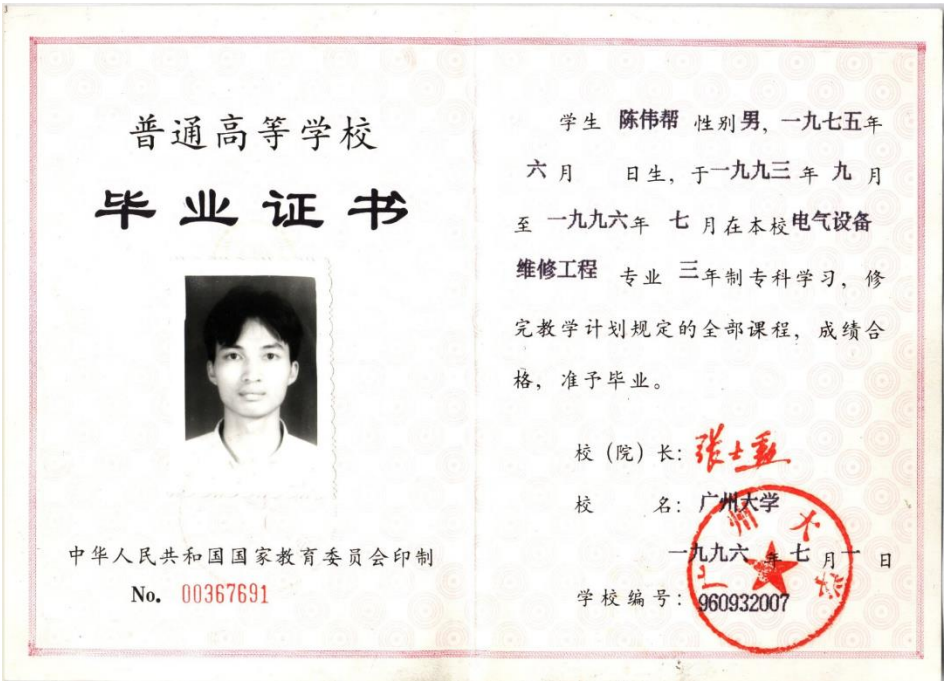 普通高等学校
毕业证书
中华人民共和国国家教育委员会印制
No. 00367691
学生 陈伟帮 性别男，一九七五年
六月 日生，于一九九三年 九 月
至 一九九六年 七 月在本校电气设备
维修工程 专业 三年制专科学习，修
完教学计划规定的全部课程，成绩合
格，准予毕业。
校（院）长：
校 名：广州大学
一九九六年七月一日
学校编号：960932007
广州大学